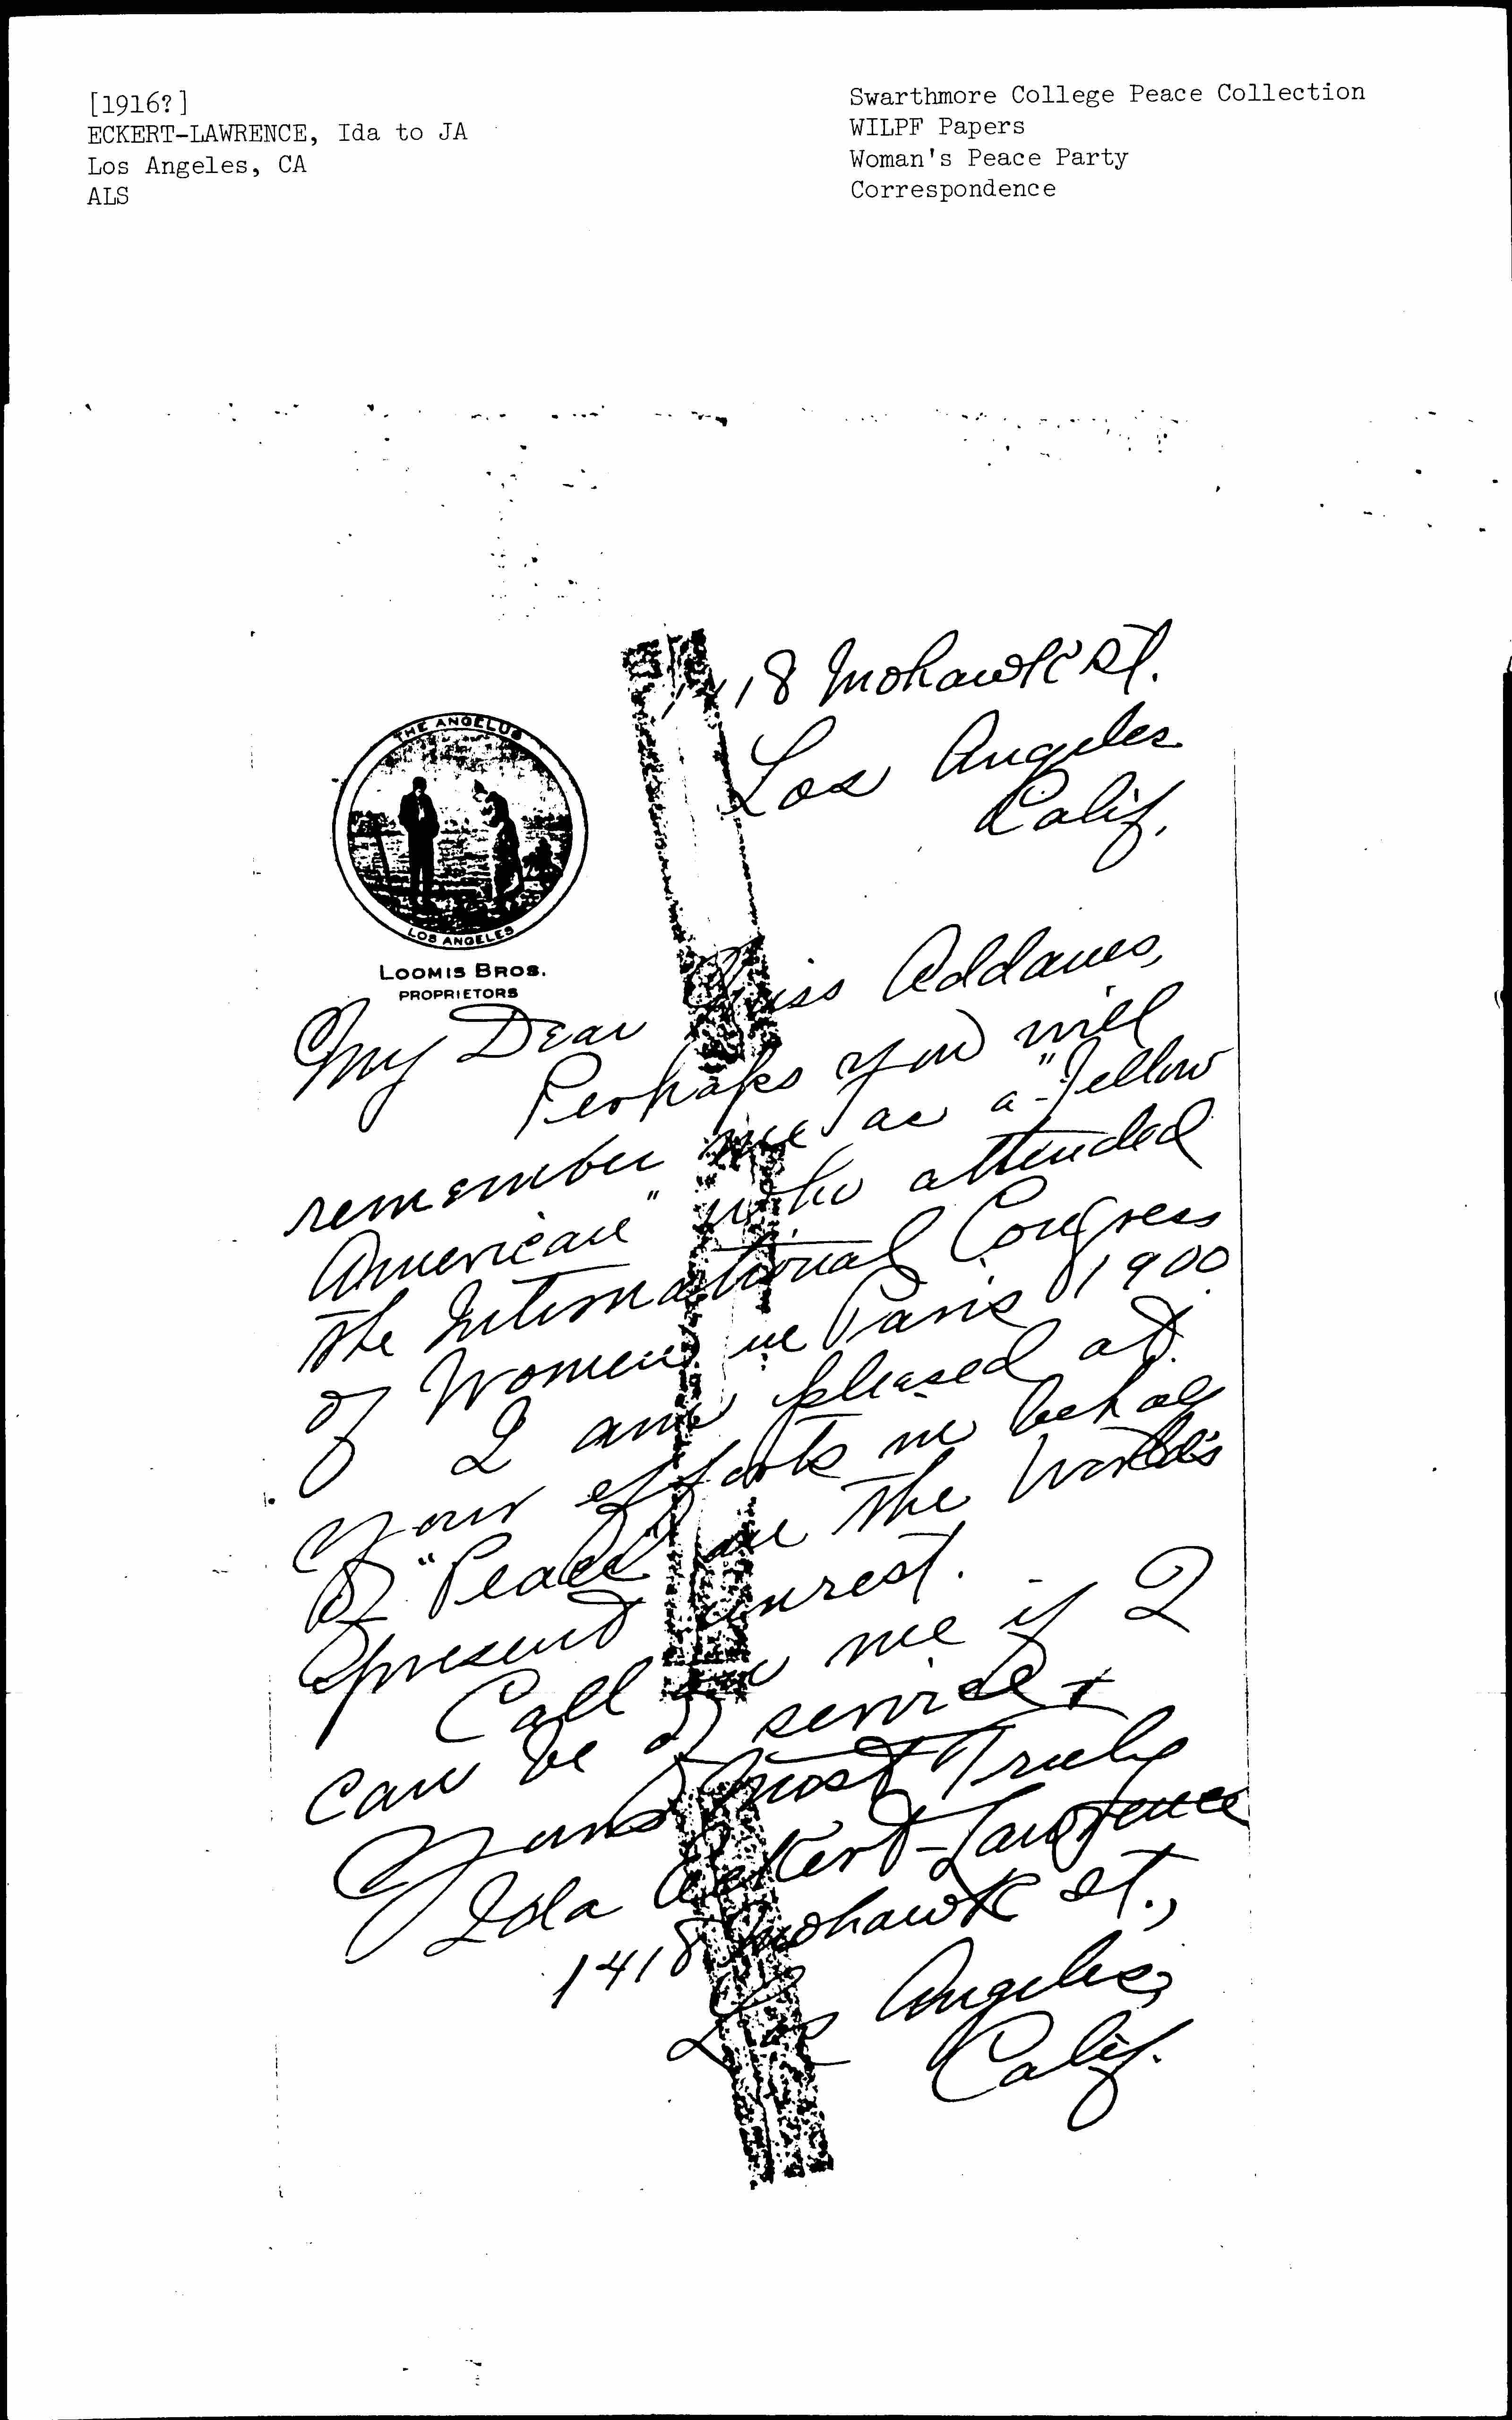 [1916?]
ECKERT-LAWRENCE, Ida to JA
Los Angeles, CA
ALS
Swarthmore College Peace Collection
WILPF Papers
Woman's Peace Party
Correspondence
1418 Mohawk St.
Los Angeles
Calif.
THE ANGELUS
LOS ANGELES
LOOMIS BROS.
PROPRIETORS
My Dear Miss Addams,
Perhaps you will
remember me as a "fellow
American" who attended
the International Congress
of Women in Paris 1900.
I am pleased at
your efforts in behalf
of "Peace" in the World's
present unrest.
Call on me if I
can be of service &
Yours most Truly
Ida Eckert-Lawrence
1418 Mohawk St.,
Los Angeles,
Calif.